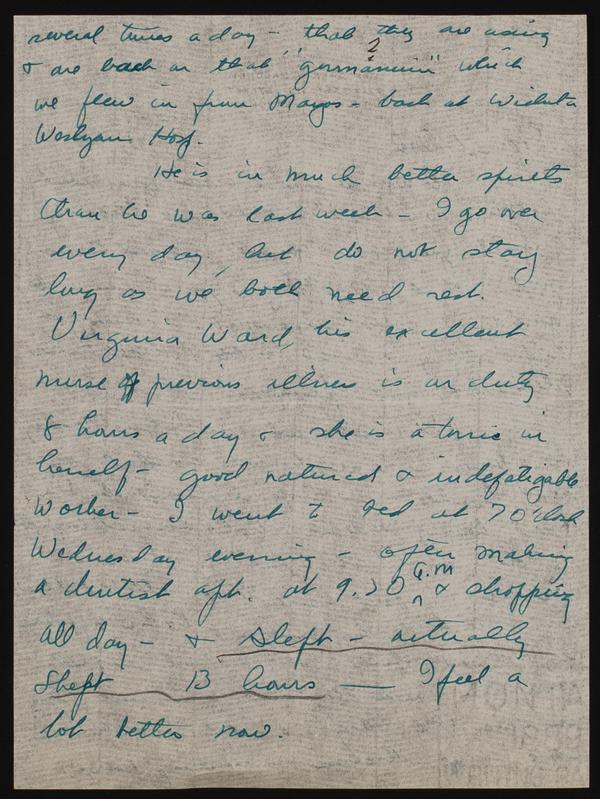 several times a day - that they are using
& are back on that "germanin" which
we flew in from Mayos - back at Wichita
Weslyan Hosp.
He is in much better spirits
than he was last week - I go over
every day, but do not stay
long as we both need rest.
Virginia Ward, his excellent
nurse of previous illness is on duty
8 hours a day & she is a tonic in
herself - good natured & indefatigable
worker - I went to bed at 7 O'clock
Wednesday evening - after making
a dentist apt. at 9.30 a.m & shopping
all day - & slept - actually
slept 13 hours — I feel a
lot better now.